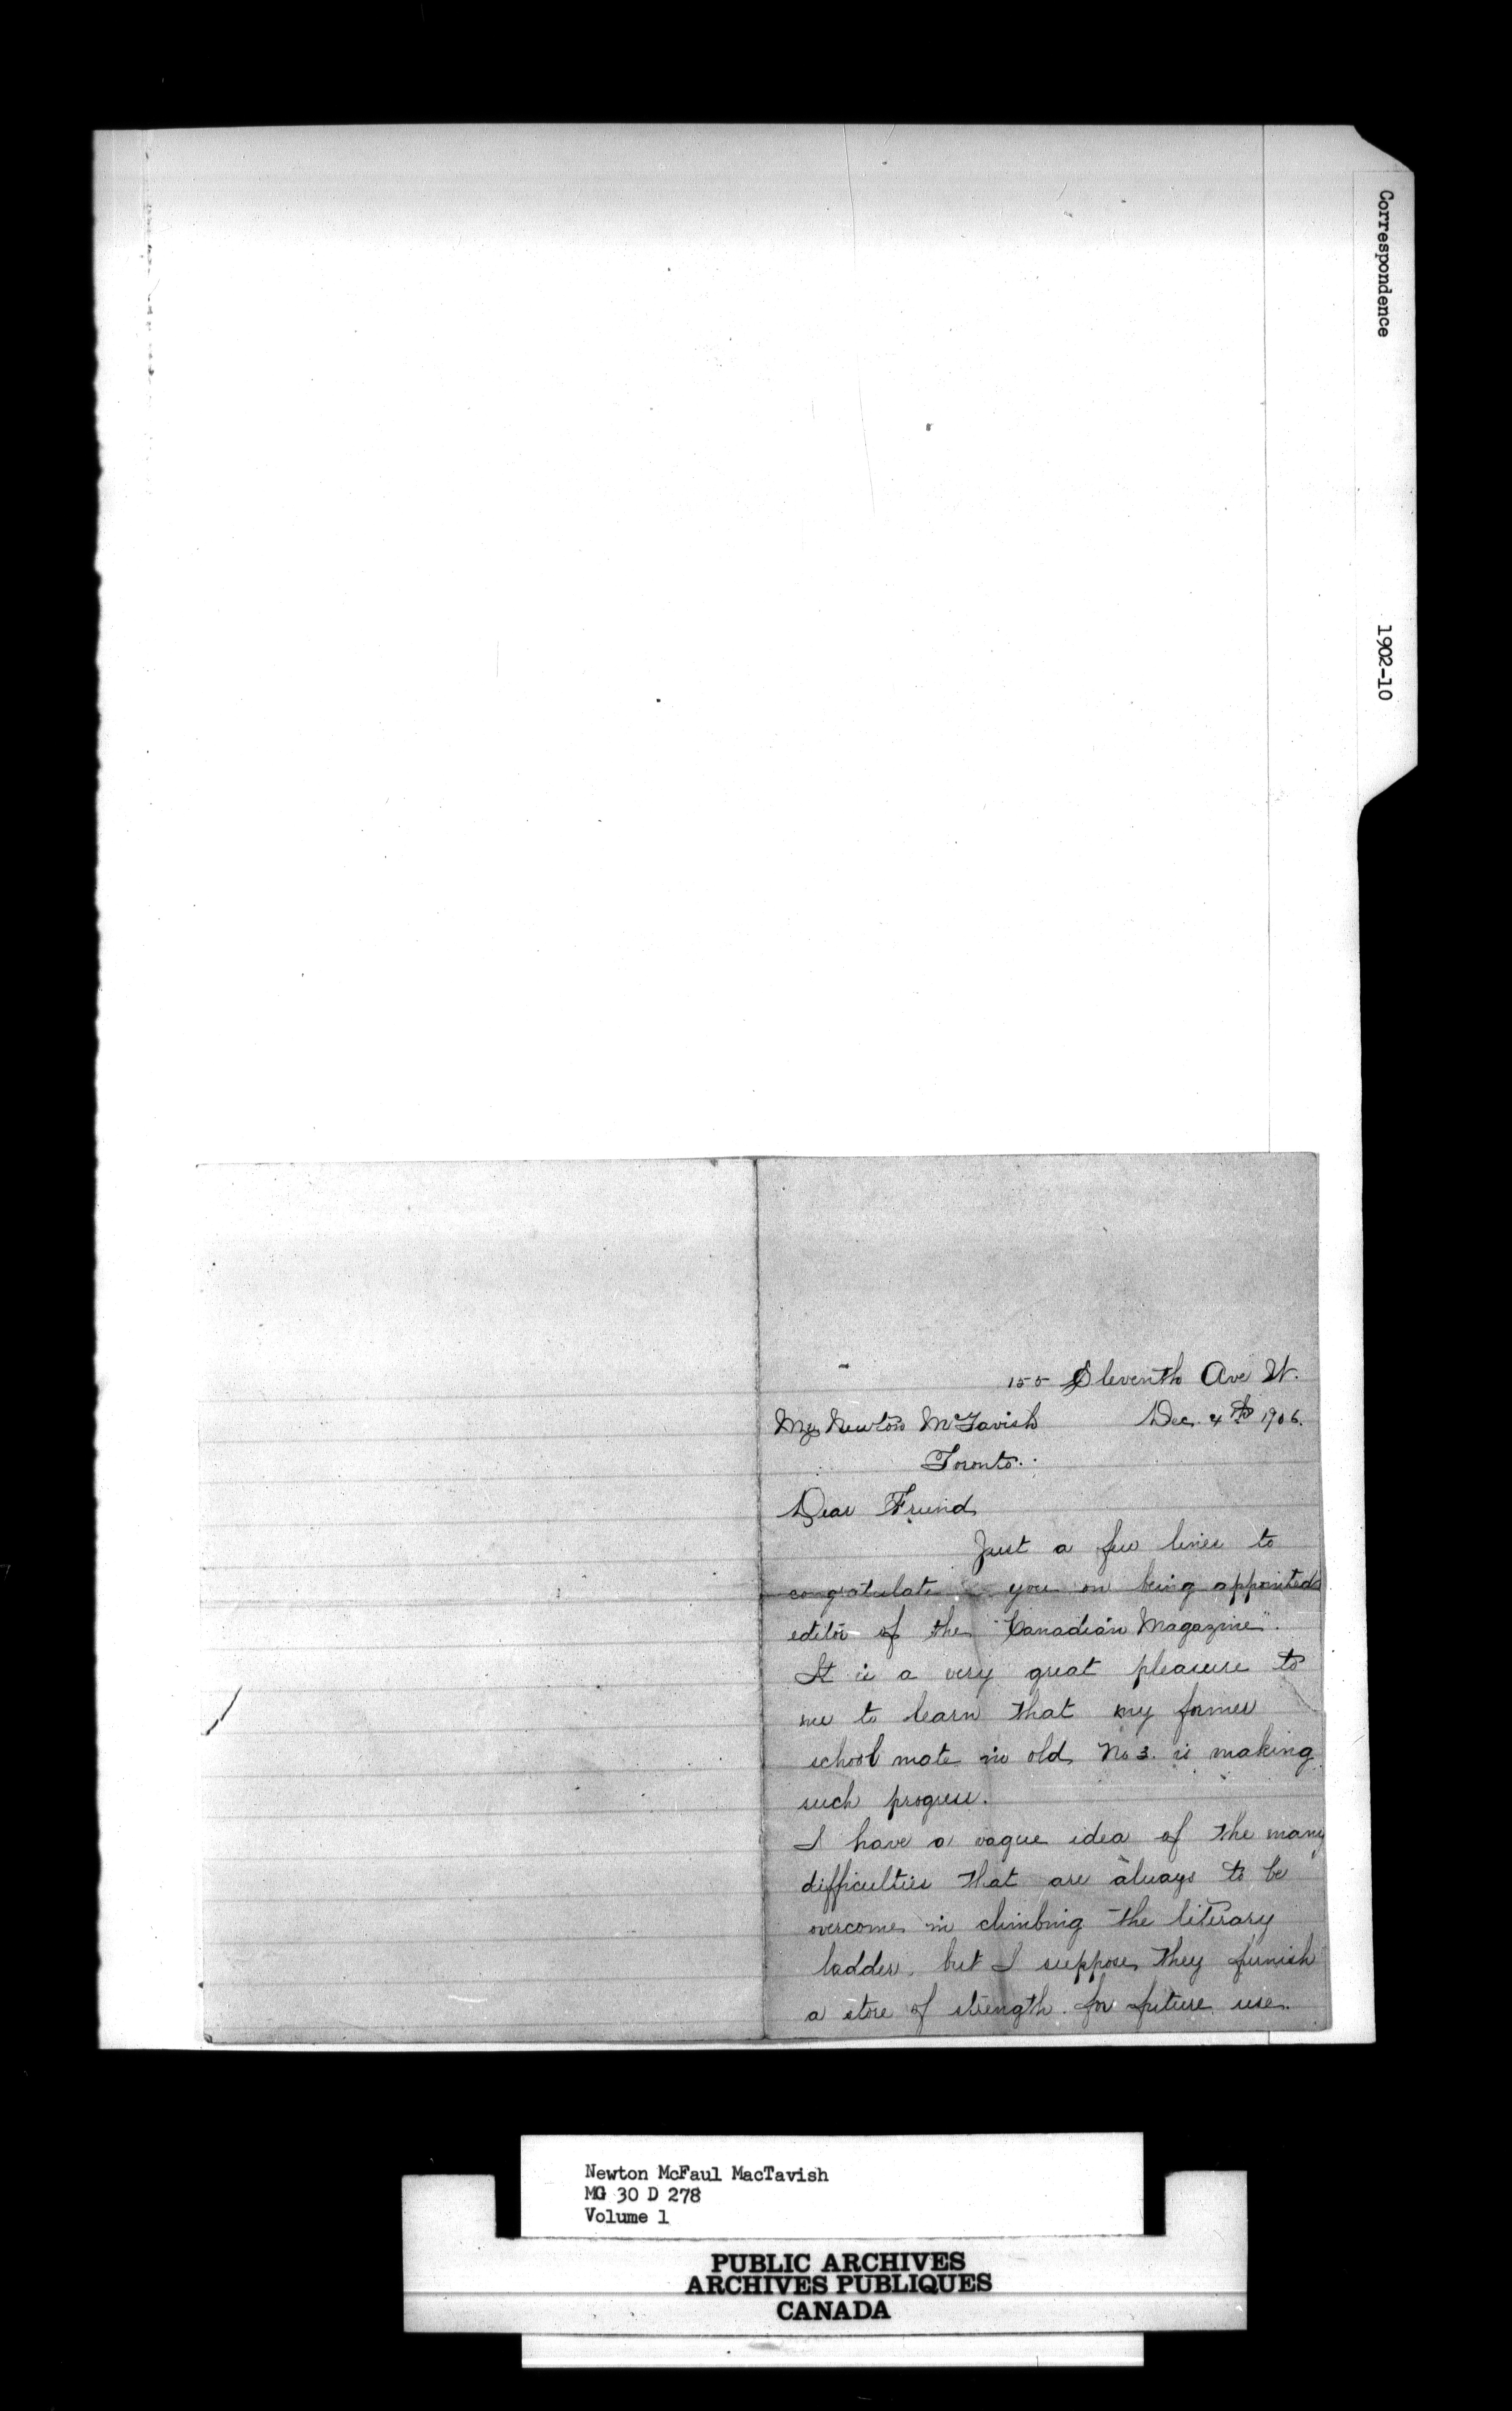 Correspondence
1902-10
155 Eleventh Ave W.
Mr Newton McTavish Dec. 4th 1906.
Toronto.
Dear Friend
Just a few lines to
congratulate you on being appointed
editor of the "Canadian Magazine".
It is a very great pleasure to
me to learn that my former
school mate in old No 3. is making
such progress.
I have a vague idea of the many
difficulties that are always to be
overcome in climbing the literary
ladder. but I suppose they furnish
a store of strength. for future use.
Newton McFaul MacTavish
MG 30 D 278
Volume 1
PUBLIC ARCHIVES
ARCHIVES PUBLIQUES
CANADA